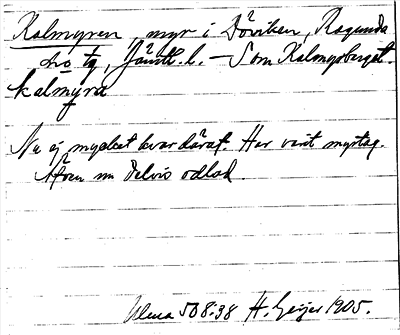 Kalmyren, myr i Döviken, Ragunda
sn o tg, Jämtl. l. — Som Kalmyrberget.
kalmyra
Nu ej mycket kvar därav. Har varit myrtag.
Även nu delvis odlad.
Ulma 508:38 H. Geijer 1905.